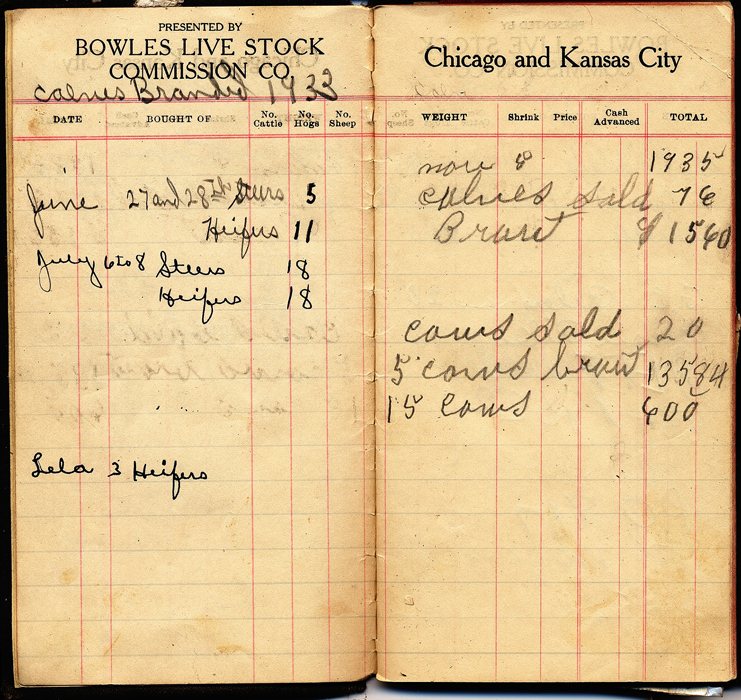 PRESENTED BY
BOWLES LIVE STOCK
COMMISSION CO.
calves Branded 1933
DATE BOUGHT OF No. Cattle No. Hogs No. Sheep
June 27 and 28th Steers 5
Heifers 11
July 6 to 8 Steers 18
Heifers 18
Lela 3 Heifers
Chicago and Kansas City
WEIGHT Shrink Price Cash Advanced TOTAL
nov 8 1935
calves sold 76
Brout $1560
cows sold 20
5 cows brout 13584
15 cows 600